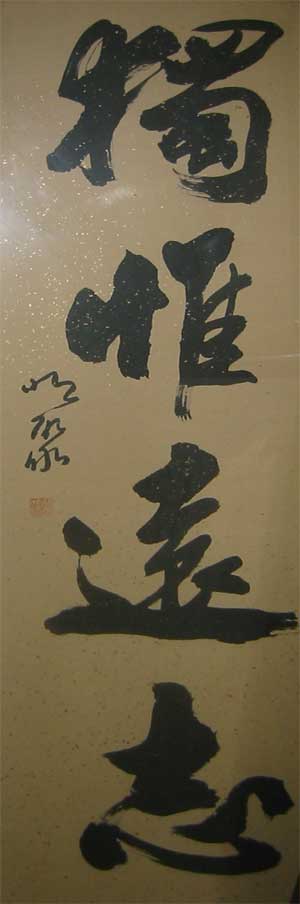 獨惟遠志